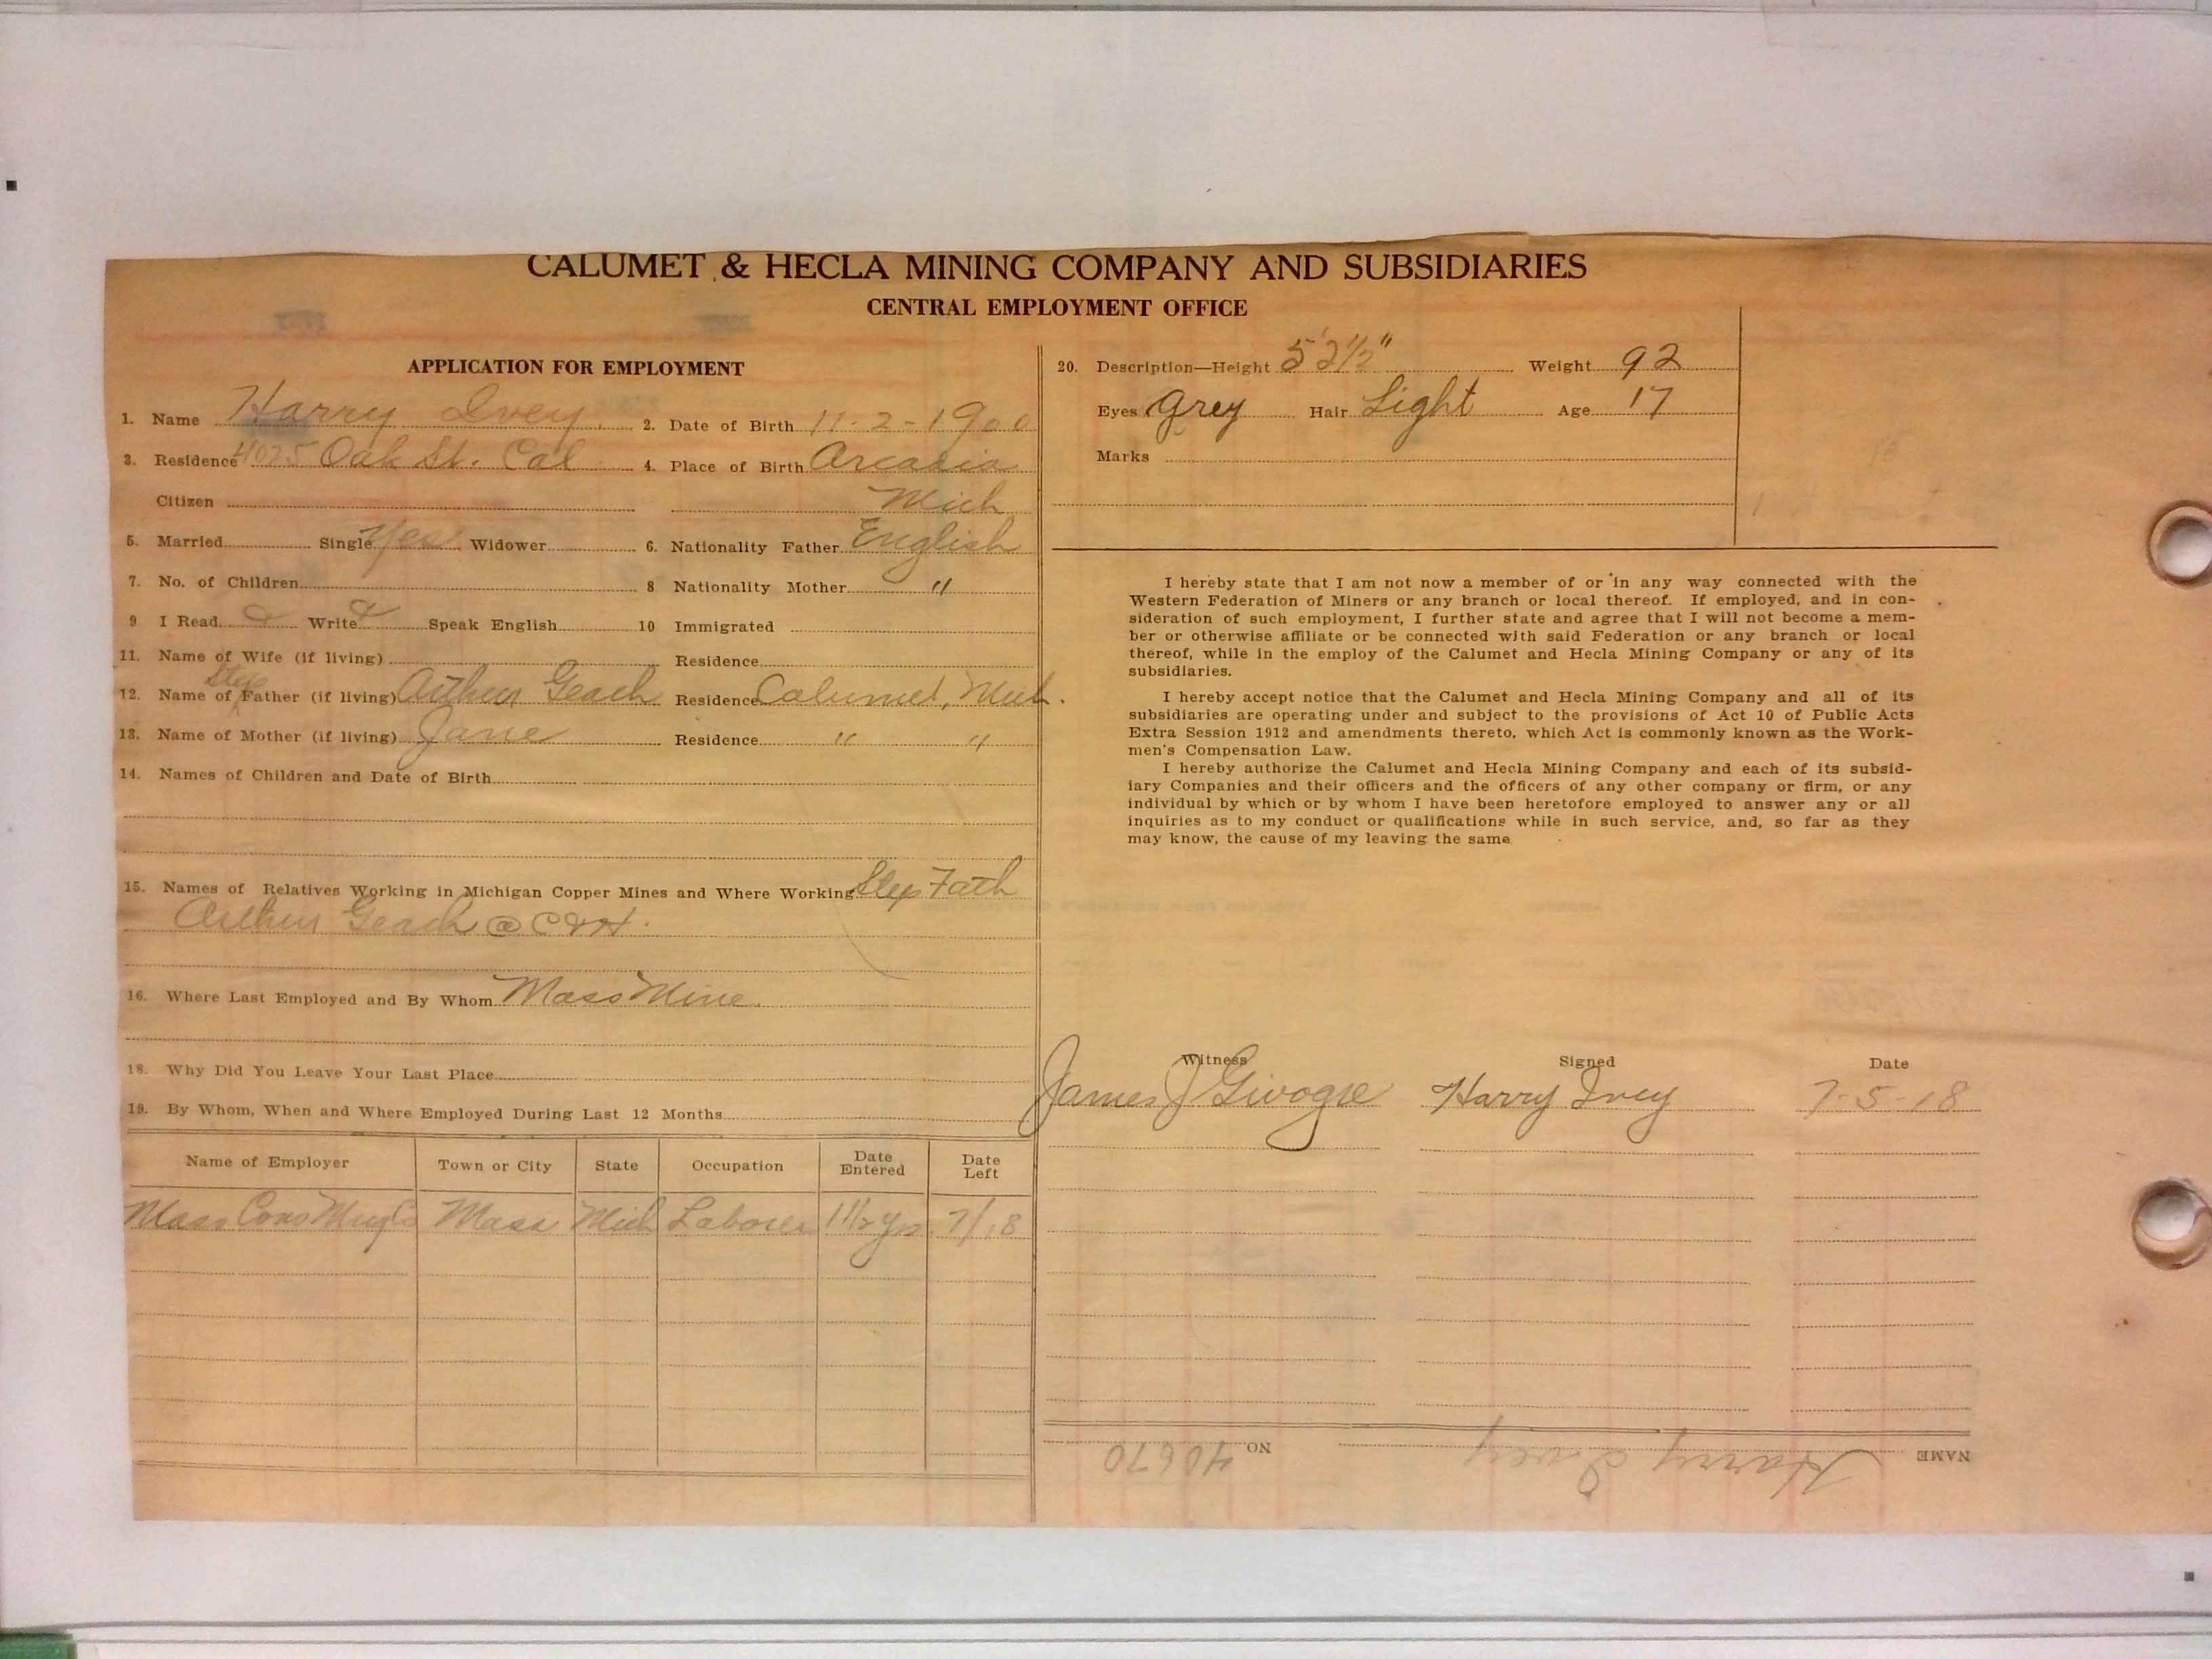 CALUMET & HECLA MINING COMPANY AND SUBSIDIARIES
CENTRAL EMPLOYMENT OFFICE
APPLICATION FOR EMPLOYMENT
1. Name Harry Ivey 2. Date of Birth 11-2-1900
3. Residence 4025 Oak St. Cal 4. Place of Birth Arcadia
Citizen Mich
5. Married Single Yes Widower 6. Nationality Father English
7. No. of Children 8 Nationality Mother "
9 I Read Write Speak English 10 Immigrated
11. Name of Wife (if living) Residence
12. Name of Step Father (if living) Arthur Geach Residence Calumet, Mich.
13. Name of Mother (if living) Jane Residence " "
14. Names of Children and Date of Birth
15. Names of Relatives Working in Michigan Copper Mines and Where Working Step Fath
Arthur Geach @ C&H.
16. Where Last Employed and By Whom Mass Mine.
18. Why Did You Leave Your Last Place
19. By Whom, When and Where Employed During Last 12 Months
Name of Employer Town or City State Occupation Date Entered Date Left
Mass Cons Mng Co Mass Mich Laborer 1 1/2 yrs. 7/18
20. Description—Height 5' 2 1/2" Weight 92
Eyes Grey Hair Light Age 17
Marks
I hereby state that I am not now a member of or in any way connected with the
Western Federation of Miners or any branch or local thereof. If employed, and in con-
sideration of such employment, I further state and agree that I will not become a mem-
ber or otherwise affiliate or be connected with said Federation or any branch or local
thereof, while in the employ of the Calumet and Hecla Mining Company or any of its
subsidiaries.
I hereby accept notice that the Calumet and Hecla Mining Company and all of its
subsidiaries are operating under and subject to the provisions of Act 10 of Public Acts
Extra Session 1912 and amendments thereto, which Act is commonly known as the Work-
men's Compensation Law.
I hereby authorize the Calumet and Hecla Mining Company and each of its subsid-
iary Companies and their officers and the officers of any other company or firm, or any
individual by which or by whom I have been heretofore employed to answer any or all
inquiries as to my conduct or qualifications while in such service, and, so far as they
may know, the cause of my leaving the same
Witness Signed Date
James J Harry Ivey 7-5-18
NAME Harry Ivey NO 40670